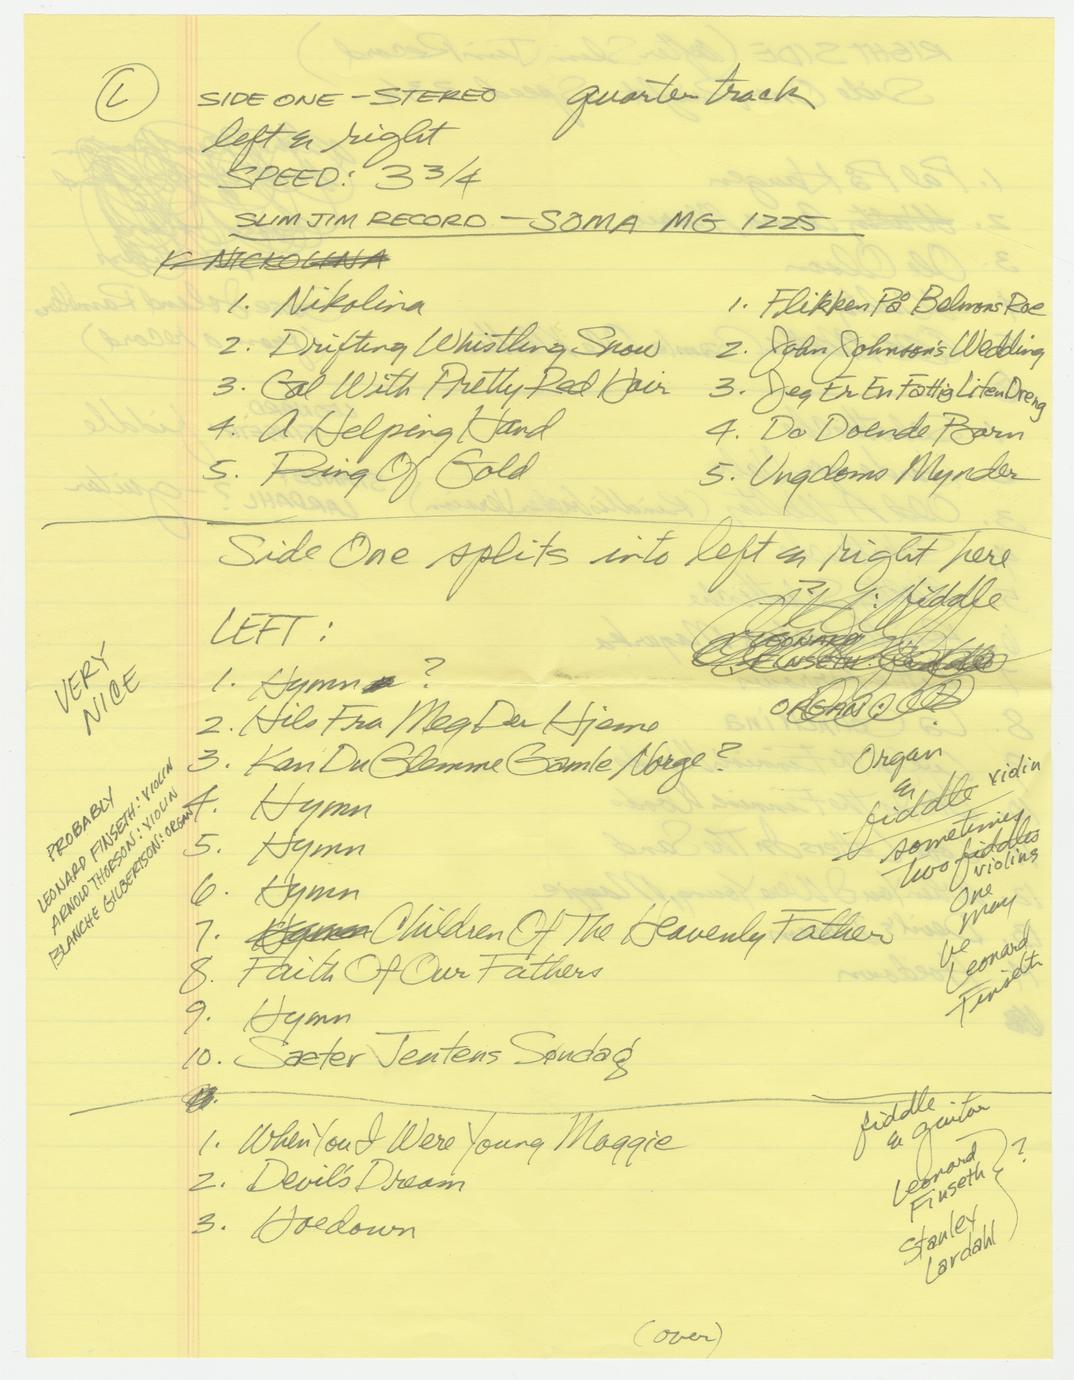 L
SIDE ONE - STEREO quarter track
left & right
SPEED: 3 3/4
SLIM JIM RECORD - SOMA MG 1225
NICKOLINA
1. Nikolina
2. Drifting Whistling Snow
3. Gal With Pretty Red Hair
4. A Helping Hand
5. Ring Of Gold
1. Flikken På Belmons Roe
2. John Johnson's Wedding
3. Jeg Er En Fattig Liten Dreng
4. Do Doende Barn
5. Ungdoms Mynder
Side One splits into left & right here
LEFT:
: fiddle
LEONARD
FINSETH
ORGAN:
VERY
NICE
1. Hymn ?
2. Hils Fra Meg Der Hjeme
3. Kan Du Glemme Gamle Norge?
4. Hymn
5. Hymn
6. Hymn
7. Hymn Children Of The Heavenly Father
8. Faith Of Our Fathers
9. Hymn
10. Sæter Jentens Søndag
PROBABLY
LEONARD FINSETH: VIOLIN
ARNOLD THORSON: VIOLIN
BLANCHE GILBERTSON: ORGAN
Organ
&
fiddle violin
sometimes
two fiddles
violins
One
may
be
Leonard
Finseth
1. When You & I Were Young Maggie
2. Devil's Dream
3. Hoedown
fiddle
& guitar
Leonard
Finseth
Stanley
Lardahl
?
(over)